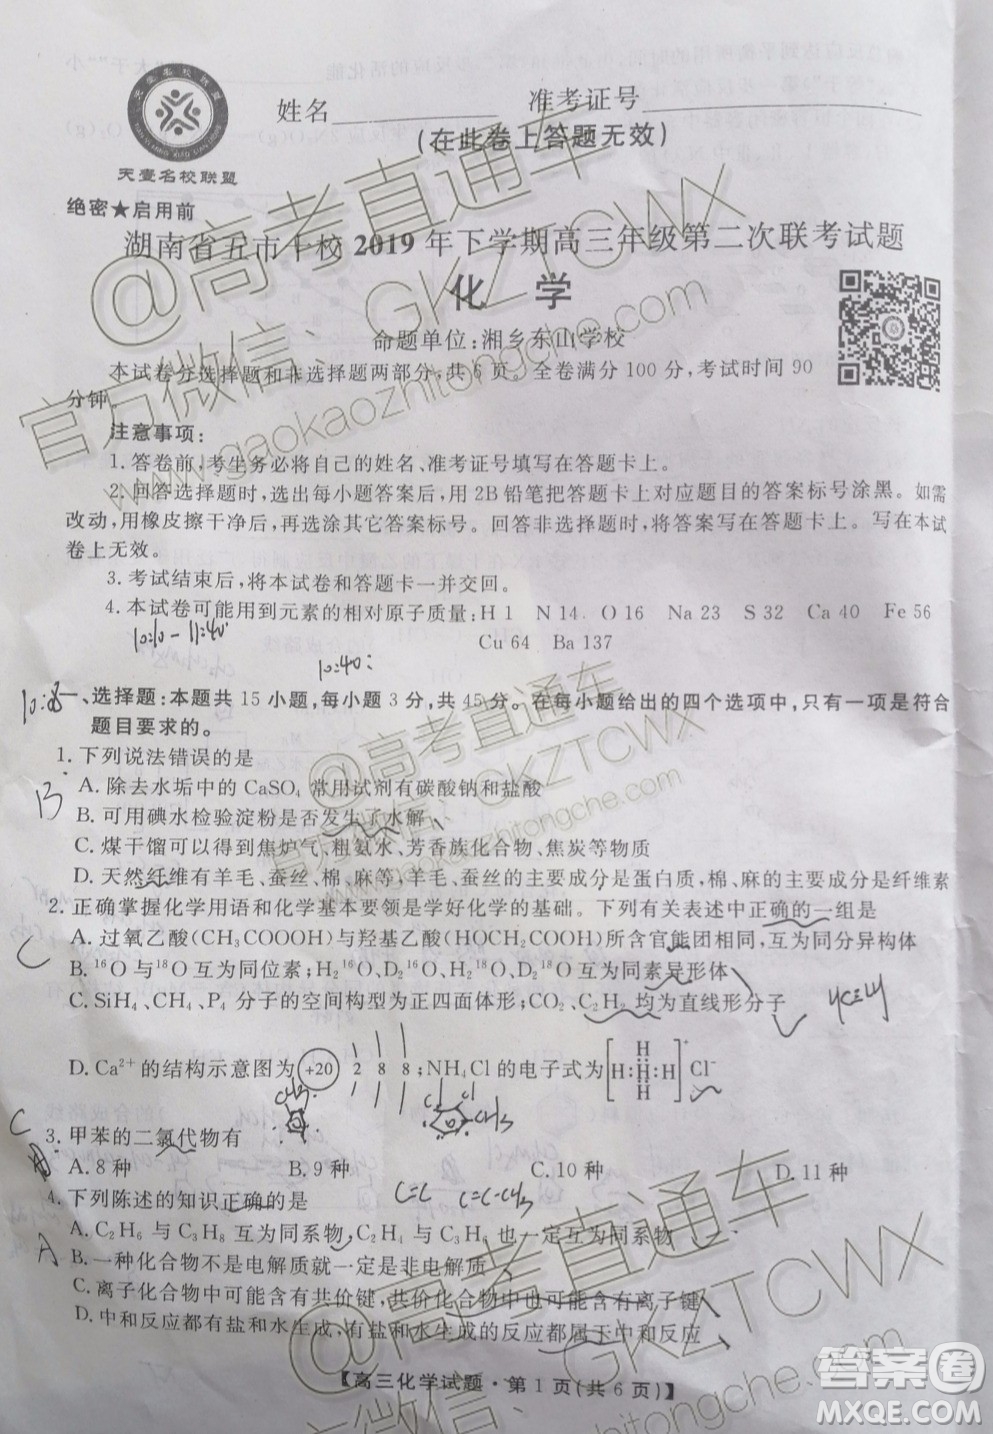 天壹名校联盟
天壹名校联盟
姓名
准考证号
(在此卷上答题无效)
绝密★启用前
湖南省五市十校2019年下学期高三年级第二次联考试题
化 学
命题单位:湘乡东山学校
本试卷分选择题和非选择题两部分,共6页。全卷满分100分,考试时间90
分钟。
注意事项:
1.答卷前,考生务必将自己的姓名、准考证号填写在答题卡上。
2.回答选择题时,选出每小题答案后,用2B铅笔把答题卡上对应题目的答案标号涂黑。如需
改动,用橡皮擦干净后,再选涂其它答案标号。回答非选择题时,将答案写在答题卡上。写在本试
卷上无效。
3.考试结束后,将本试卷和答题卡一并交回。
4.本试卷可能用到元素的相对原子质量:H 1 N 14 O 16 Na 23 S 32 Ca 40 Fe 56
Cu 64 Ba 137
10:10-11:40
10:40:
一、选择题:本题共15小题,每小题3分,共45分。在每小题给出的四个选项中,只有一项是符合
题目要求的。
1.下列说法错误的是
B
A.除去水垢中的CaSO₄常用试剂有碳酸钠和盐酸
B.可用碘水检验淀粉是否发生了水解
C.煤干馏可以得到焦炉气、粗氨水、芳香族化合物、焦炭等物质
D.天然纤维有羊毛、蚕丝、棉、麻等,羊毛、蚕丝的主要成分是蛋白质,棉、麻的主要成分是纤维素
2.正确掌握化学用语和化学基本要领是学好化学的基础。下列有关表述中正确的一组是
C
A.过氧乙酸(CH₃COOOH)与羟基乙酸(HOCH₂COOH)所含官能团相同,互为同分异构体
B.¹⁶O与¹⁸O互为同位素;H₂¹⁶O、D₂¹⁶O、H₂¹⁸O、D₂¹⁸O互为同素异形体
C.SiH₄、CH₄、P₄分子的空间构型为正四面体形;CO₂、C₂H₂均为直线形分子
D.Ca²⁺的结构示意图为 +20 2 8 8;NH₄Cl的电子式为[H:H:H]⁺Cl⁻
H
H
CH3
Cl Cl CH3
C
3.甲苯的二氯代物有
A.8种 B.9种 C.10种 D.11种
4.下列陈述的知识正确的是
C=C C=C-CH3
A
A.C₂H₆与C₃H₈互为同系物,C₂H₄与C₃H₆也一定互为同系物
B.一种化合物不是电解质就一定是非电解质
C.离子化合物中可能含有共价键,共价化合物中也可能含有离子键
D.中和反应都有盐和水生成,有盐和水生成的反应都属于中和反应
【高三化学试题·第1页(共6页)】
@高考直通车
官方微信:GKZTCWX
www.gaokaozhitongche.com
@高考直通车
官方微信:GKZTCWX
www.gaokaozhitongche.com
@高考直通车
官方微信:GKZTCWX
答案卷
MXQE.COM